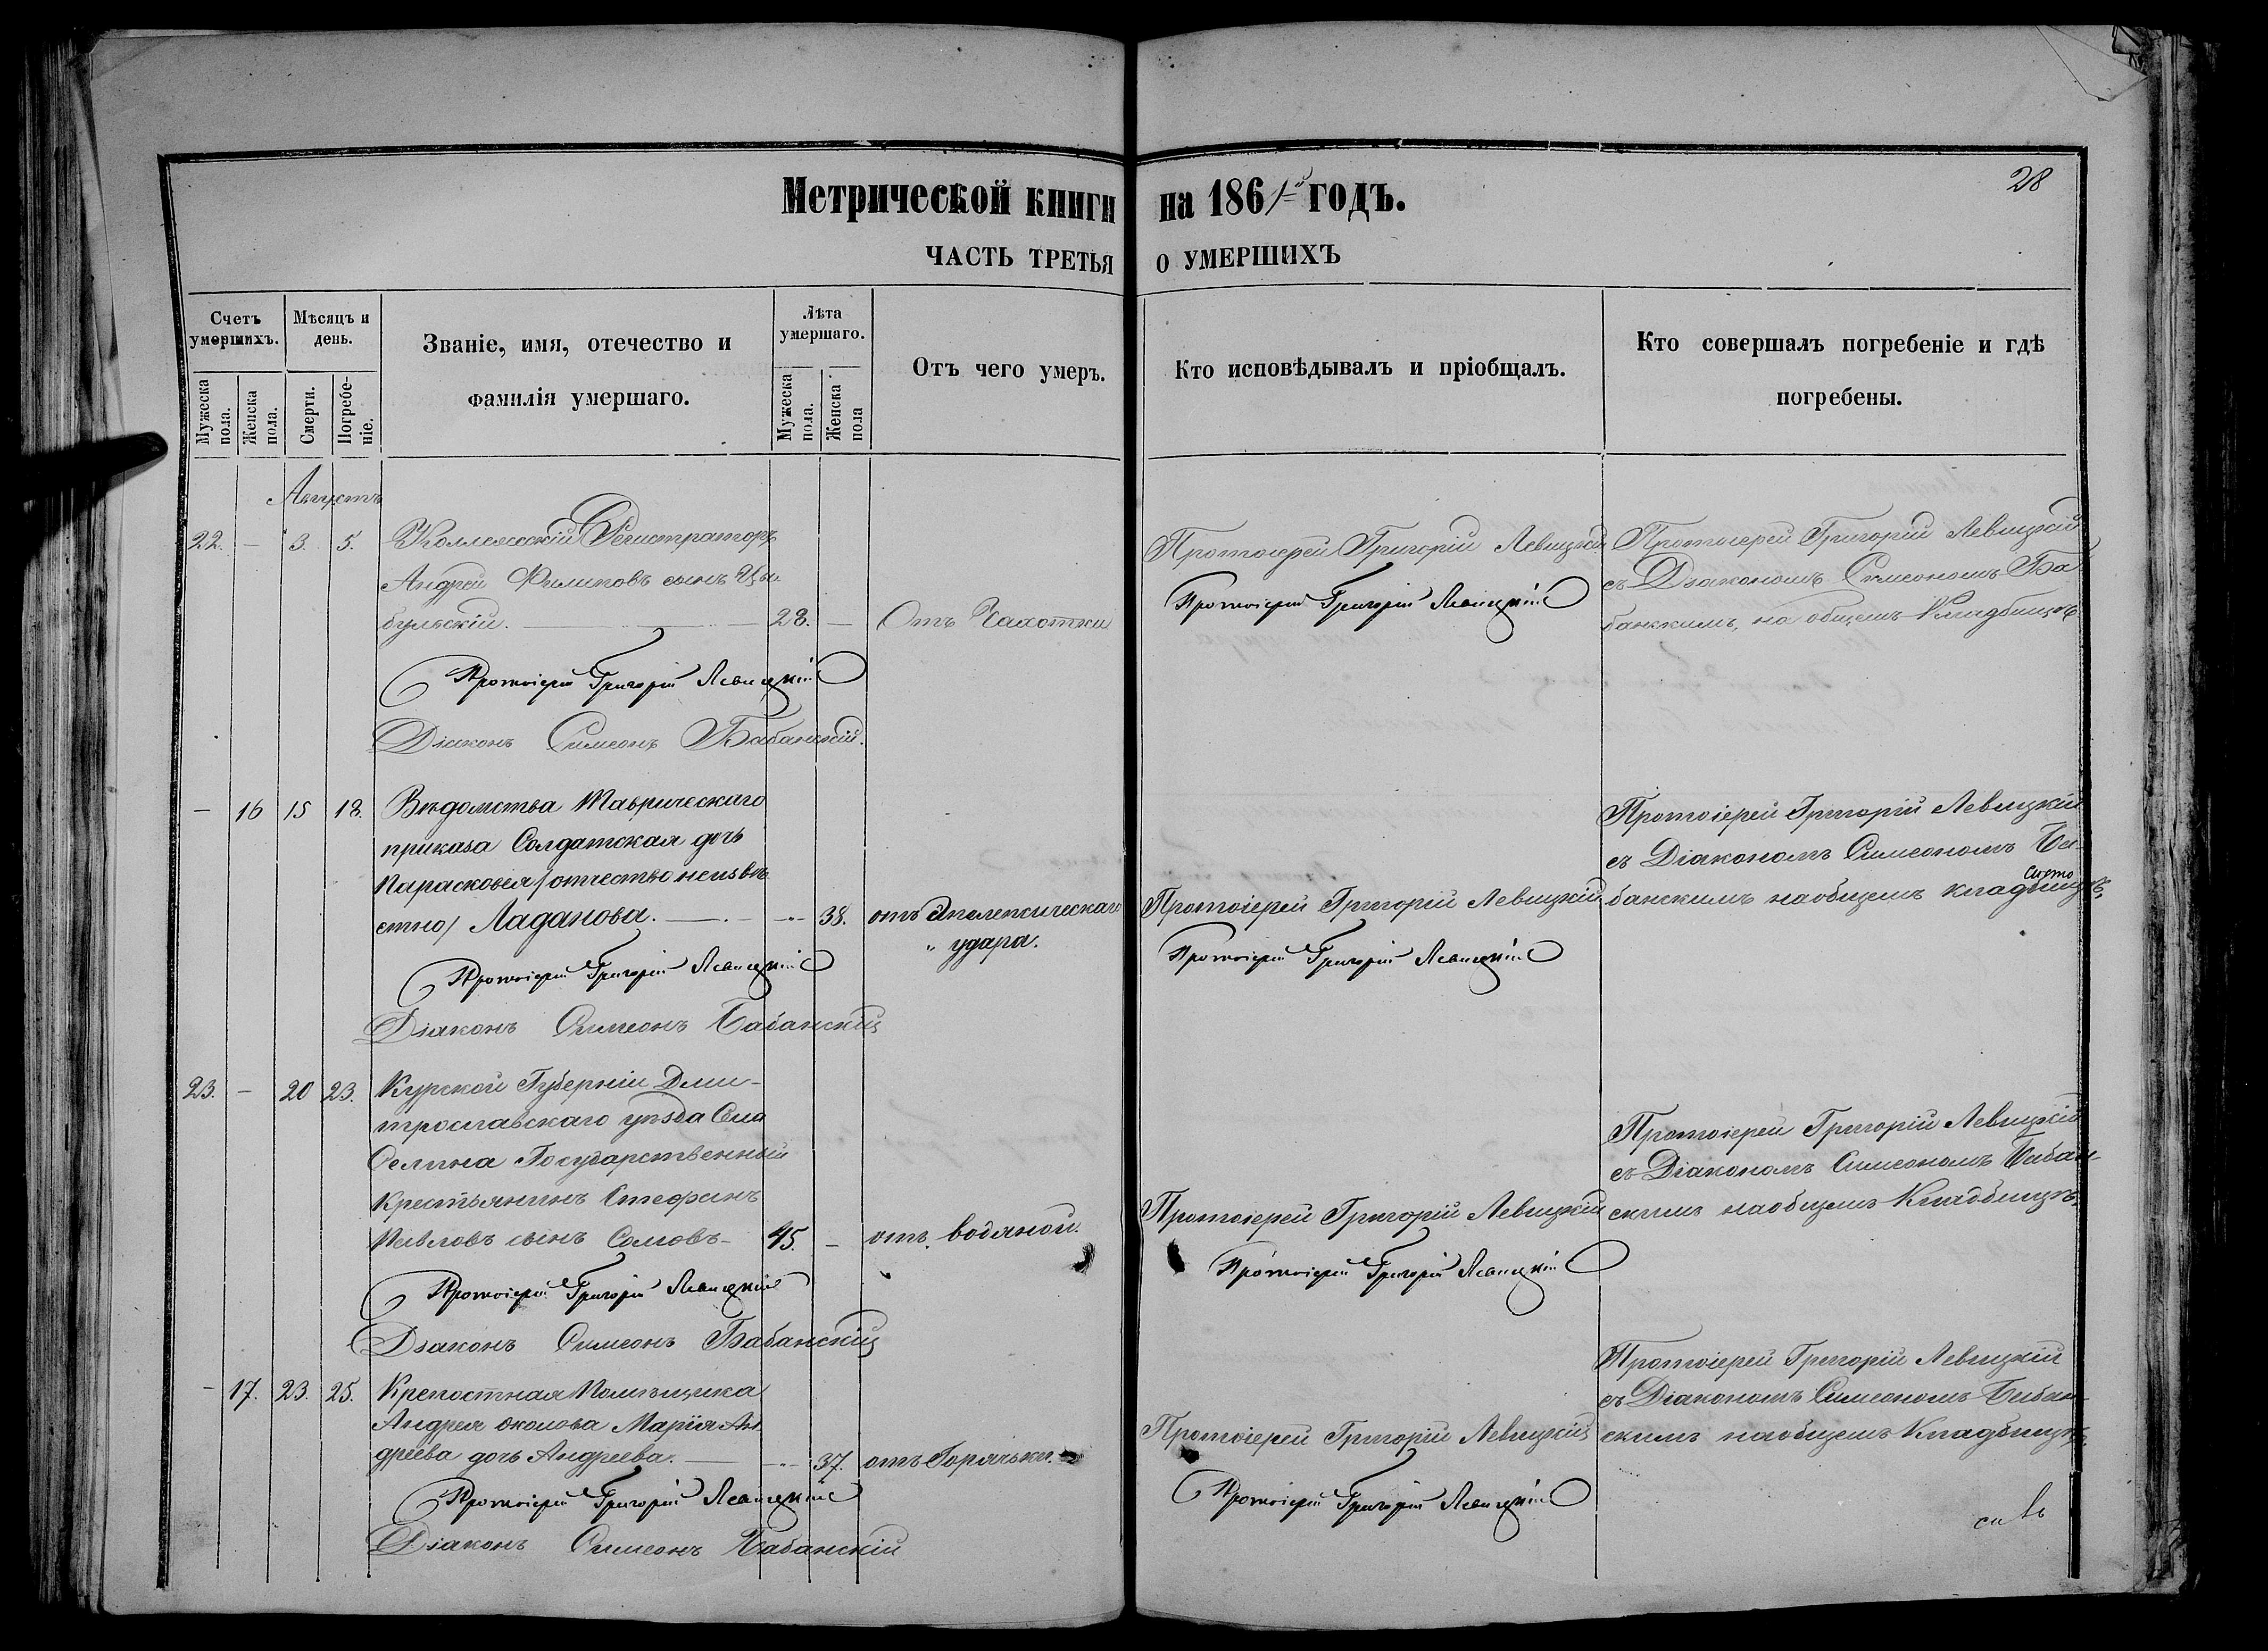 28
Метрической книги на 1861-й годъ.
ЧАСТЬ ТРЕТЬЯ О УМЕРШИХЪ
Счетъ умершихъ.
Мужеска пола.
Женска пола.
Мѣсяцъ и день.
Смерти.
Погребе-ніе.
Званіе, имя, отечество и
фамилія умершаго.
Лѣта умершаго.
Мужеска пола.
Женска пола
Отъ чего умеръ.
Кто исповѣдывалъ и пріобщалъ.
Кто совершалъ погребеніе и гдѣ
погребены.
Августъ
22. — 3. 5. Коллежскій Регистраторъ
Андрей Филиповъ сынъ Цы
бульскій. — 28. — Отъ Чахотки
Протоіерей Григорій Левицкій
Протоіерей Григорій Левицкій
Протоіерей Григорій Левицкій
съ Діакономъ Симеономъ Ба
банскимъ, на общемъ Кладбищѣ
Протоіерей Григорій Левицкій
Діаконъ Симеонъ Бабанскій.
— 16 15 18. Вѣдомства Таврическаго
приказа Солдатская дочь
Парасковья /отчество неизвѣ
стно/ Ладанова. — 38. отъ Апалепсическаго
„ удара.
Протоіерей Григорій Левицкій
Протоіерей Григорій Левицкій
Протоіерей Григорій Левицкій
съ Діакономъ Симеономъ Ба-
банскимъ наобщемъ кладбищѣ,
Протоіерей Григорій Левицкій
Діаконъ Симеонъ Бабанскій
23. — 20 23. Курской Губерніи Дми-
трославскаго уѣзда Села
Селина Государственный
Крестьянинъ Стефанъ
Павловъ сынъ Сомовъ- 45. — отъ водяной.
Протоіерей Григорій Левицкій
Протоіерей Григорій Левицкій
Протоіерей Григорій Левицкій
съ Діакономъ Симеономъ Бабан-
скимъ наобщемъ Кладбищѣ,
Протоіерей Григорій Левицкій
Діаконъ Симеонъ Бабанскій
— 17. 23. 25. Крепостная Помѣщика
Андрея Марія Ан
дреева дочь Андреева. — 37. отъ Горячьки.
Протоіерей Григорій Левицкій
Протоіерей Григорій Левицкій
Протоіерей Григорій Левицкій
съ Діакономъ Симеономъ Бабан-
скимъ наобщемъ Кладбищѣ,
Протоіерей Григорій Левицкій
Діаконъ Симеонъ Бабанскій